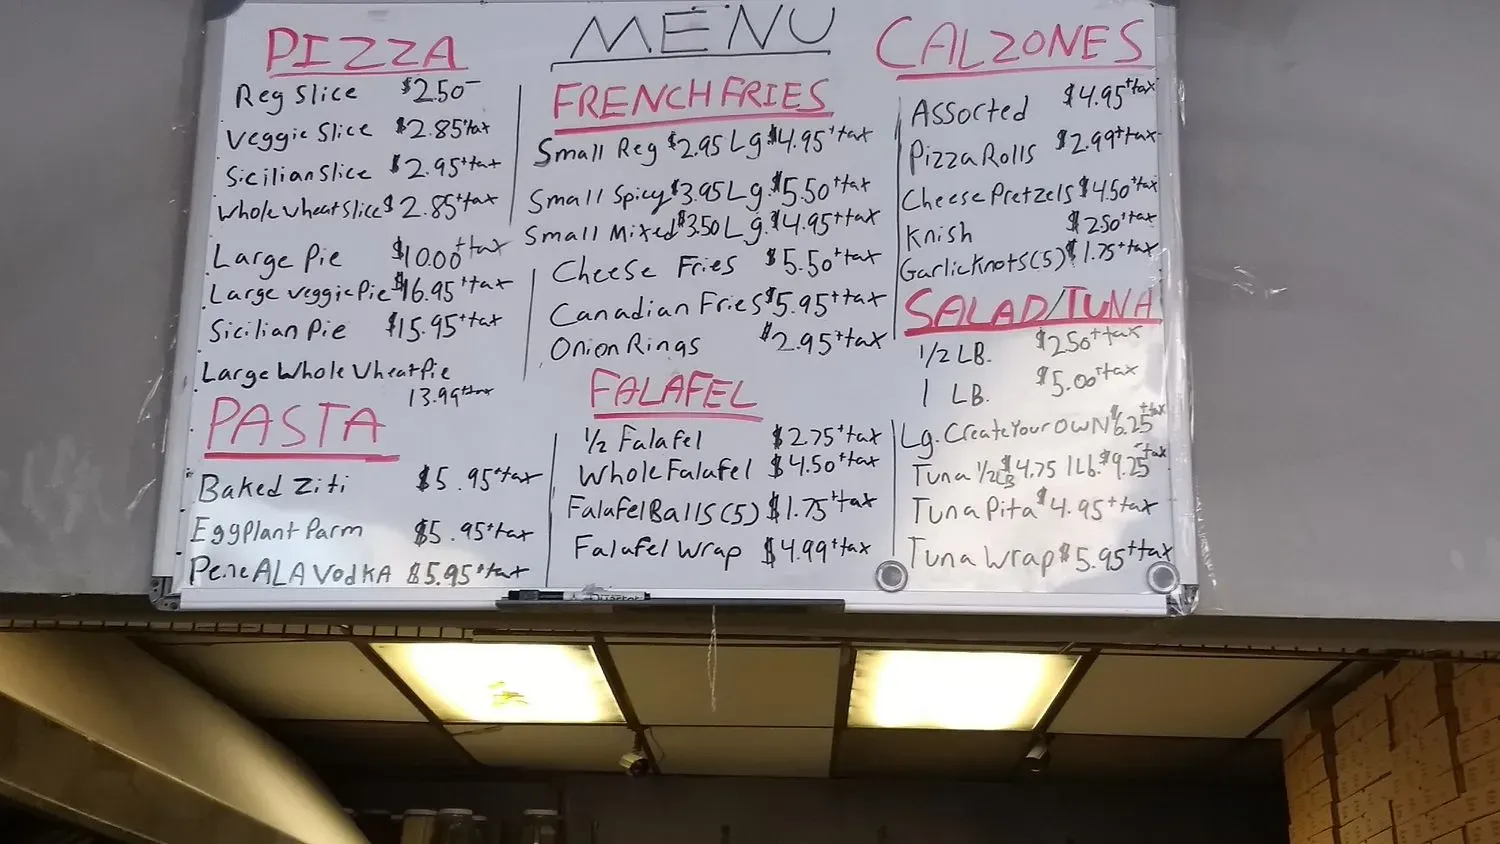 MENU
PIZZA
Reg Slice $2.50
Veggie Slice $2.85+tax
Sicilian Slice $2.95+tax
Whole Wheat Slice $2.85+tax
Large Pie $10.00+tax
Large Veggie Pie $16.95+tax
Sicilian Pie $15.95+tax
Large Whole Wheat Pie
13.99+tax
PASTA
Baked Ziti $5.95+tax
Eggplant Parm $5.95+tax
Pene ALA Vodka $5.95+tax
FRENCH FRIES
Small Reg $2.95 Lg.$4.95+tax
Small Spicy $3.95 Lg.$5.50+tax
Small Mixed $3.50 Lg.$4.95+tax
Cheese Fries $5.50+tax
Canadian Fries $5.95+tax
Onion Rings $2.95+tax
FALAFEL
1/2 Falafel $2.75+tax
Whole Falafel $4.50+tax
Falafel Balls (5) $1.75+tax
Falafel Wrap $4.99+tax
CALZONES
Assorted $4.95+tax
Pizza Rolls $2.99+tax
Cheese Pretzels $4.50+tax
Knish $2.50+tax
Garlic Knots (5) $1.75+tax
SALAD/TUNA
1/2 LB. $2.50+tax
1 LB. $5.00+tax
Lg. Create Your OWN $6.25+tax
Tuna 1/2LB $4.75 1 Lb. $9.25+tax
Tuna Pita $4.95+tax
Tuna Wrap $5.95+tax